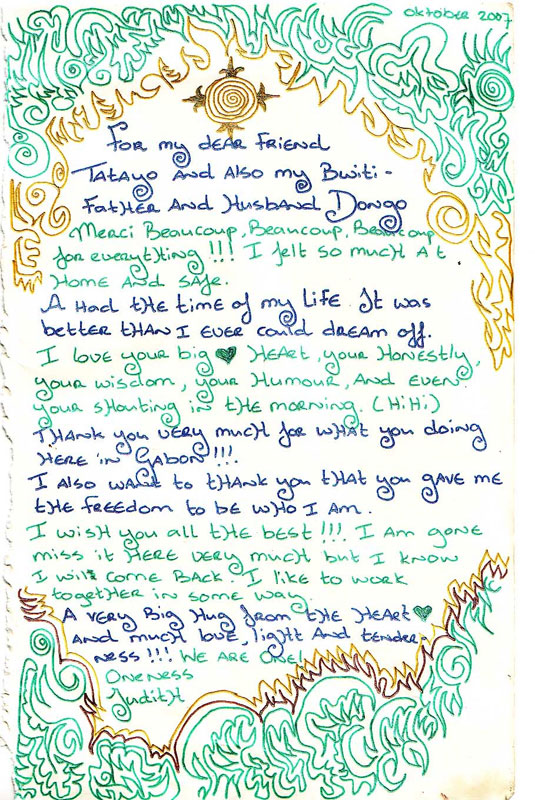 oktober 2007
For my dear friend
Tatayo and also my Bwiti-
Father and Husband Dongo
Merci Beaucoup, Beaucoup, Beaucoup
for everything !!! I felt so much at
home and safe.
A had the time of my life. It was
better than I ever could dream off.
I love your big ♥ heart, your honestly,
your wisdom, your humour, and even
your shouting in the morning. (Hi Hi)
Thank you very much for what you doing
here in Gabon !!!
I also want to thank you that you gave me
the freedom to be who I am.
I wish you all the best !!! I am gone
miss it here very much but I know
I will come back. I like to work
together in some way.
A very big hug from the heart ♥
and much love, light and tender-
ness !!! We are one!
Oneness
Judith